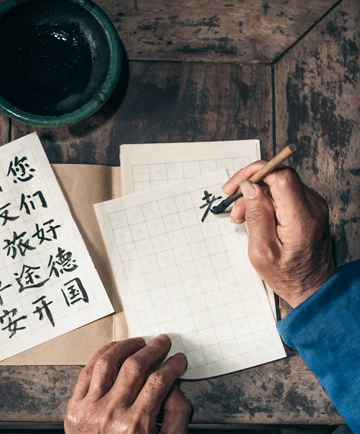 您们好德国
友旅途开
安
老